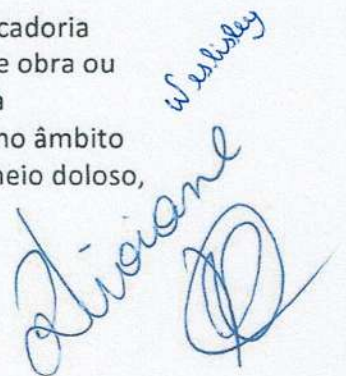 cadoria
e obra ou
a
no âmbito
neio doloso,
Weslisley